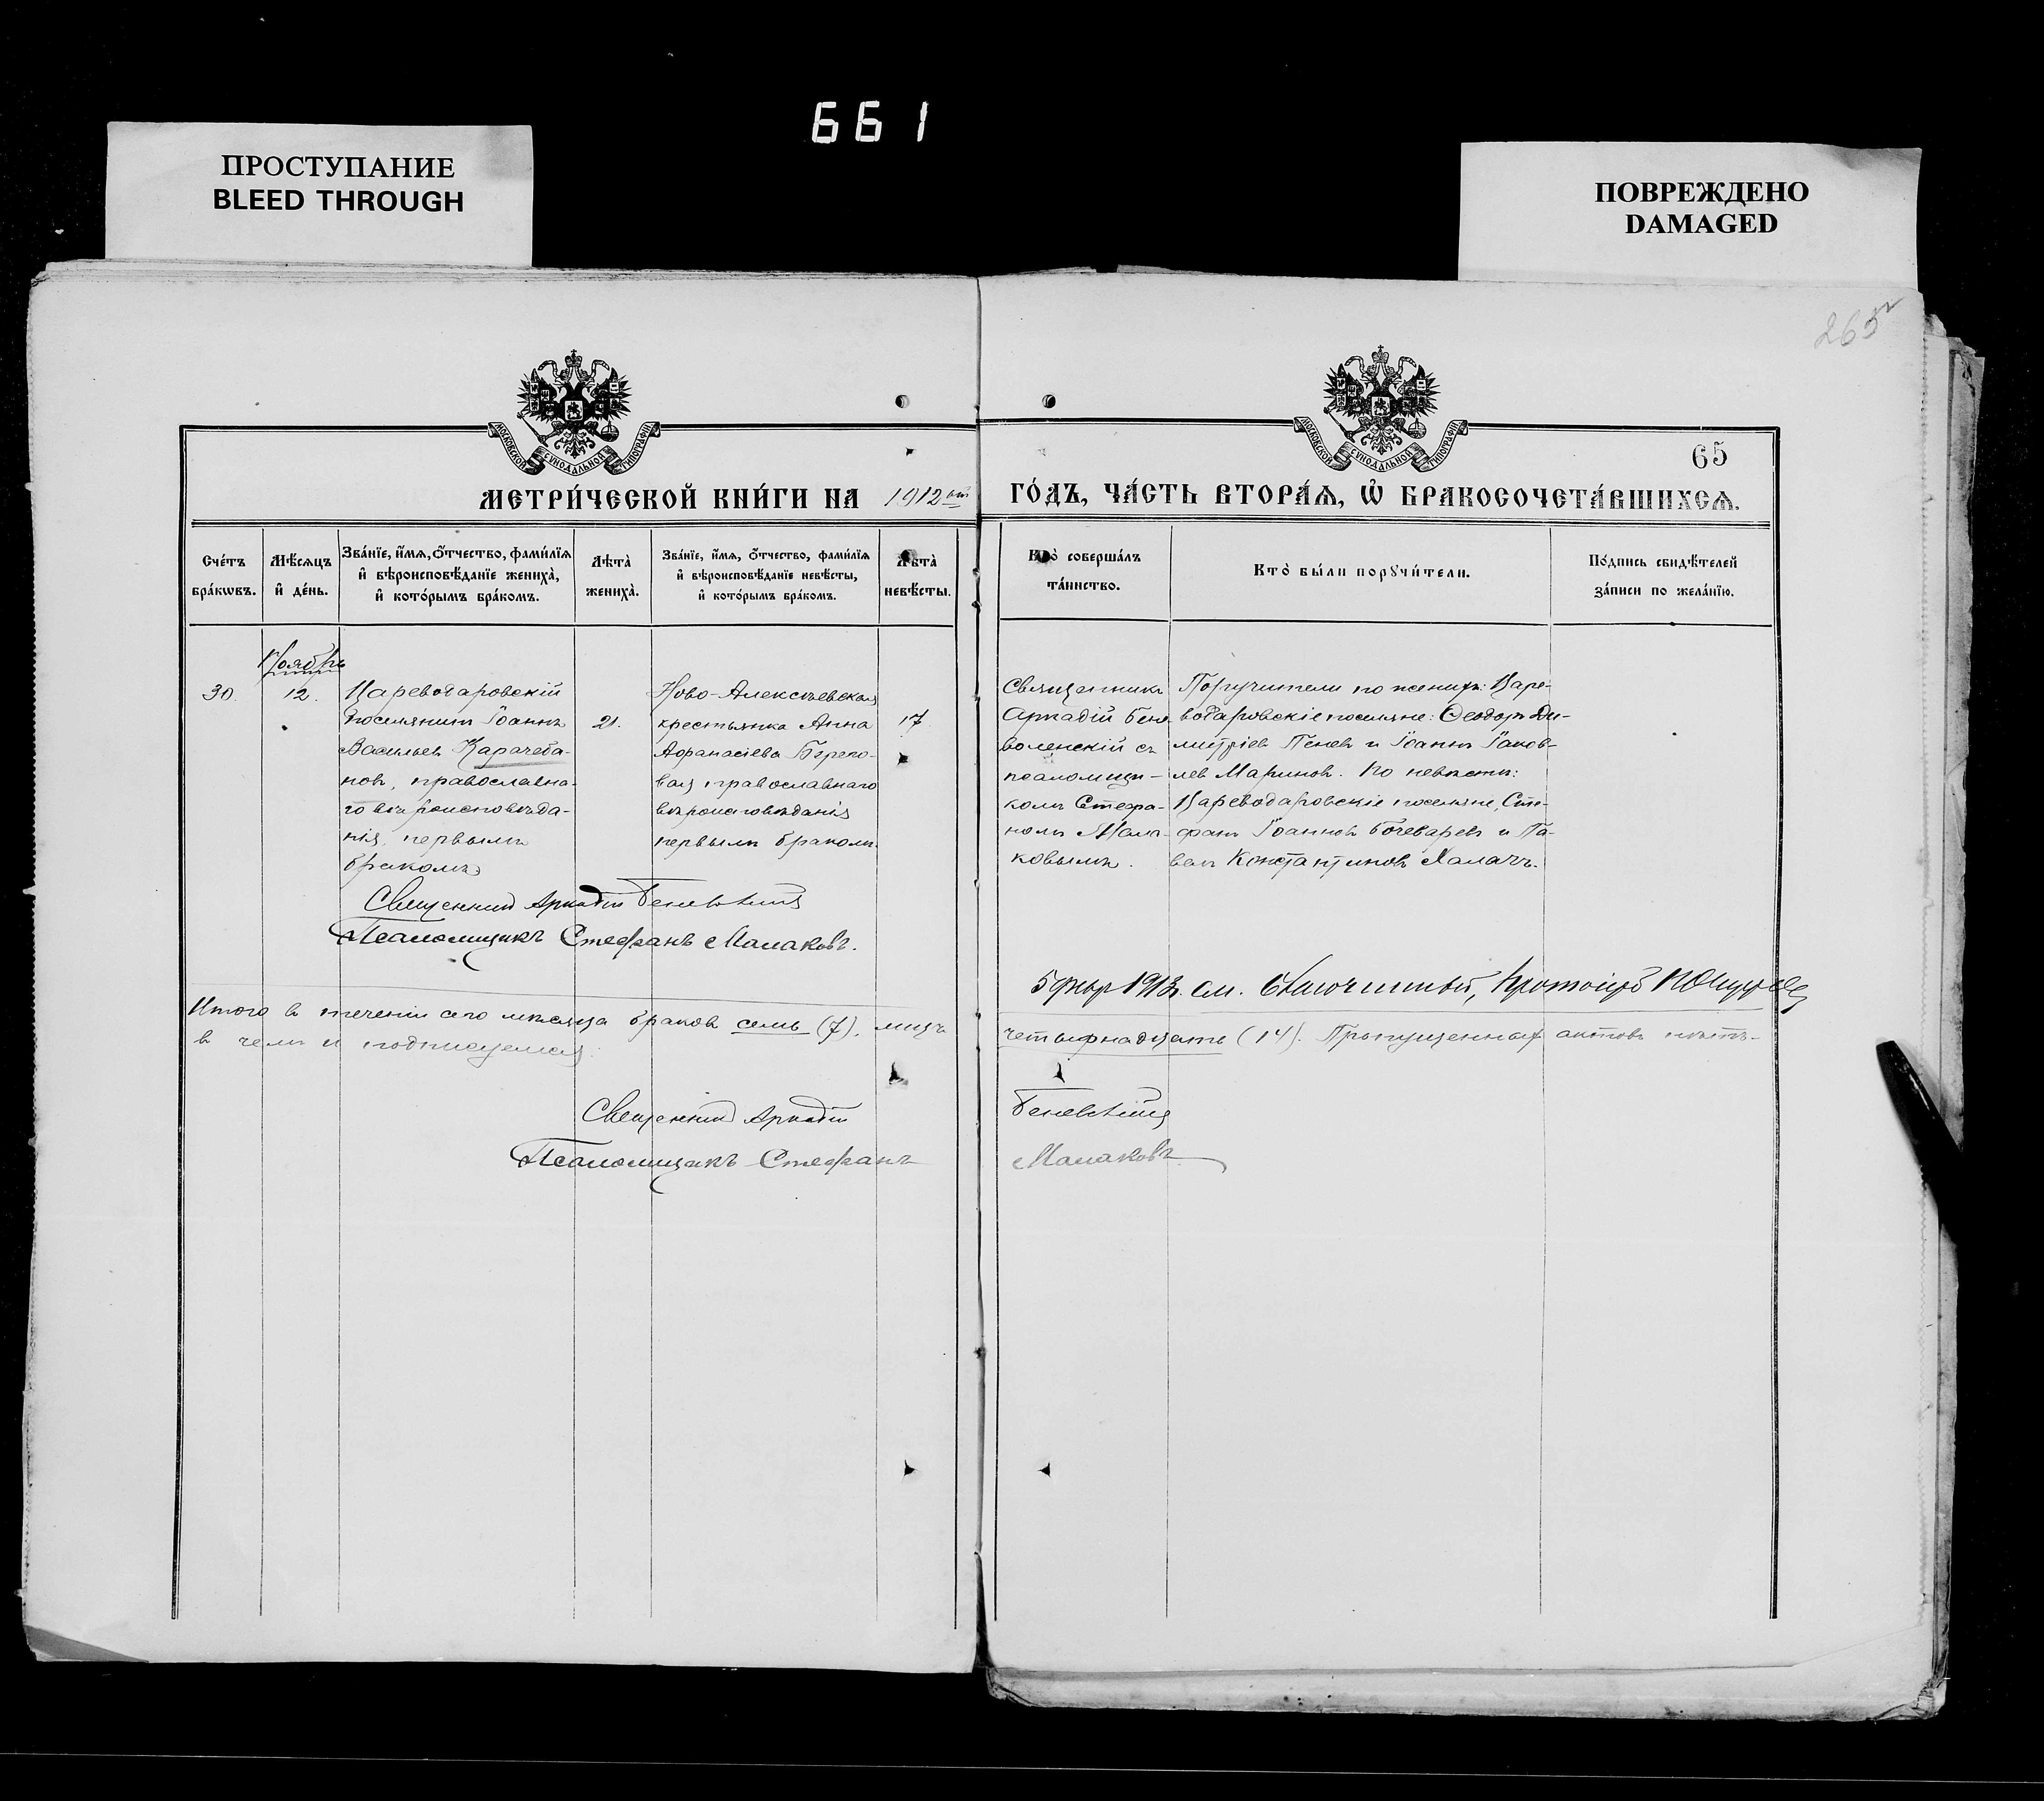 661
ПРОСТУПАНИЕ
BLEED THROUGH
ПОВРЕЖДЕНО
DAMAGED
265
МОСКОВСКОЙ СѴНОДАЛЬНОЙ ТИПОГРАФІИ
МОСКОВСКОЙ СѴНОДАЛЬНОЙ ТИПОГРАФІИ
65
МЕТРИ́ЧЕСКОЙ КНИ́ГИ НА 1912
ГО́ДЪ, ЧА́СТЬ ВТОРА́Ѧ, Ѡ҆ БРАКОСОЧЕТА́ВШИХСѦ.
Сче́тъ бра́кѡвъ.
Мѣ́сѧцъ и҆ де́нь.
Зва́нїе, и҆́мѧ, ѻ҆́тчество, фами́лїѧ и҆ вѣроисповѣ́данїе жениха̀, и҆ кото́рымъ бра́комъ.
Лѣта̀ жениха̀.
Зва́нїе, и҆́мѧ, ѻ҆́тчество, фами́лїѧ и҆ вѣроисповѣ́данїе невѣ́сты, и҆ кото́рымъ бра́комъ.
Лѣта̀ невѣ́сты.
Кто̀ соверша́лъ та́инство.
Кто̀ бы́ли порꙋчи́тели.
По́дпись свидѣ́телей за́писи по жела́нїю.
Ноябрь
30.
12.
Цареводаровскій
поселянинъ Іоаннъ
Васильевъ Карачеба-
новъ, православна-
го вѣроисповѣда-
нія, первымъ
бракомъ
21.
Ново-Алексѣевская
крестьянка Анна
Афанасіева Берего-
вая православнаго
вѣроисповѣданія
первымъ бракомъ
17
Священникъ
Аркадій Бене-
воленскій съ
псаломщи-
комъ Стефа-
номъ Мала-
ковымъ.
Поручители по женихѣ: Царе-
водаровскіе поселяне: Ѳеодоръ Ди-
митріевъ Пеневъ и Іоаннъ Іаков-
левъ Мариновъ. По невѣстѣ:
Цареводаровскіе поселяне, Сте-
фанъ Іоанновъ Бочеваровъ и Па-
велъ Константиновъ Халачъ.
Священникъ Аркадій
Псаломщикъ Стефанъ Малаковъ.
1913г. см. Благочинный, Протоіерей
Итого въ теченіи сего мѣсяца браковъ семь (7), лицъ
четырнадцать (14). Пропущенныхъ актовъ нѣтъ-
въ чемъ и подписуемся:
Священникъ Аркадій
Псаломщикъ Стефанъ Малаковъ